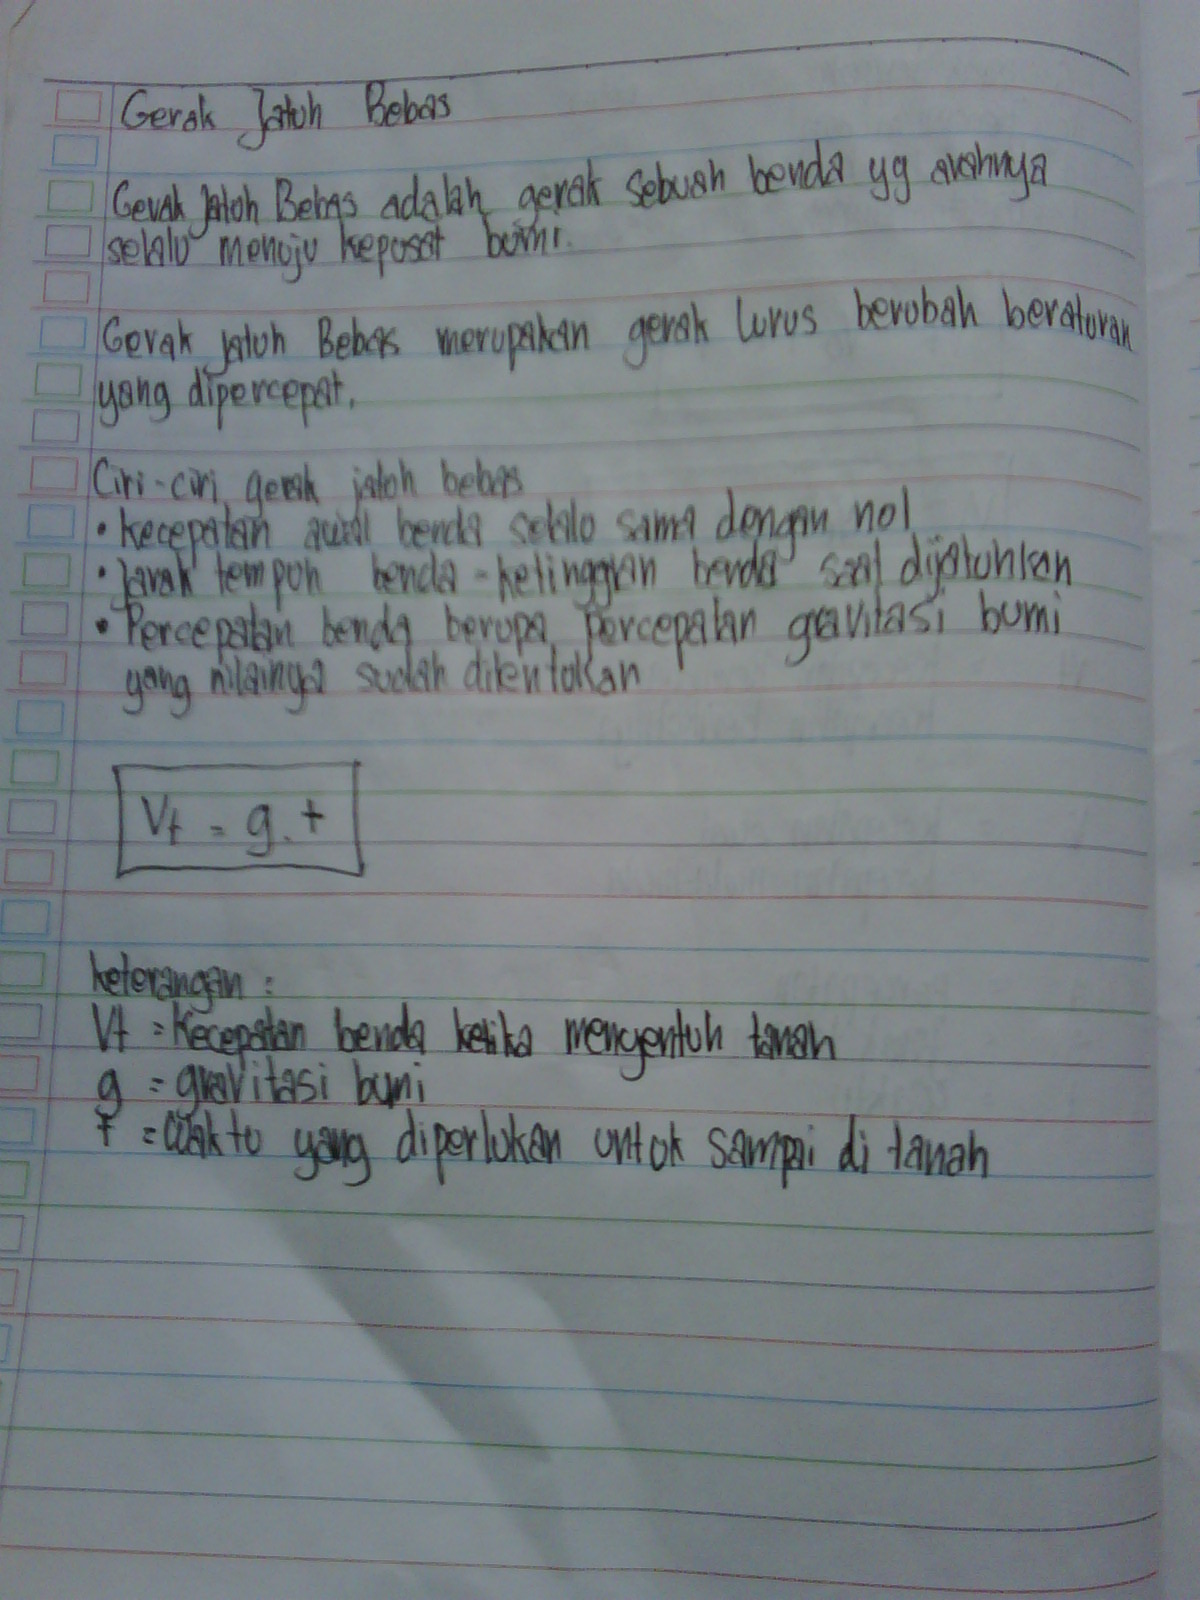 Gerak Jatuh Bebas
Gerak Jatuh Bebas adalah gerak sebuah benda yg arahnya
selalu menuju kepusat bumi.
Gerak jatuh Bebas merupakan gerak lurus berubah beraturan
yang dipercepat.
Ciri-ciri gerak jatuh bebas
• Kecepatan awal benda selalu sama dengan nol
• Jarak tempuh benda - ketinggian benda saat dijatuhkan
• Percepatan benda berupa percepatan gravitasi bumi
yang nilainya sudah ditentukan
Vt = g . t
keterangan :
Vt = Kecepatan benda ketika menyentuh tanah
g = gravitasi bumi
t = waktu yang diperlukan untuk sampai di tanah